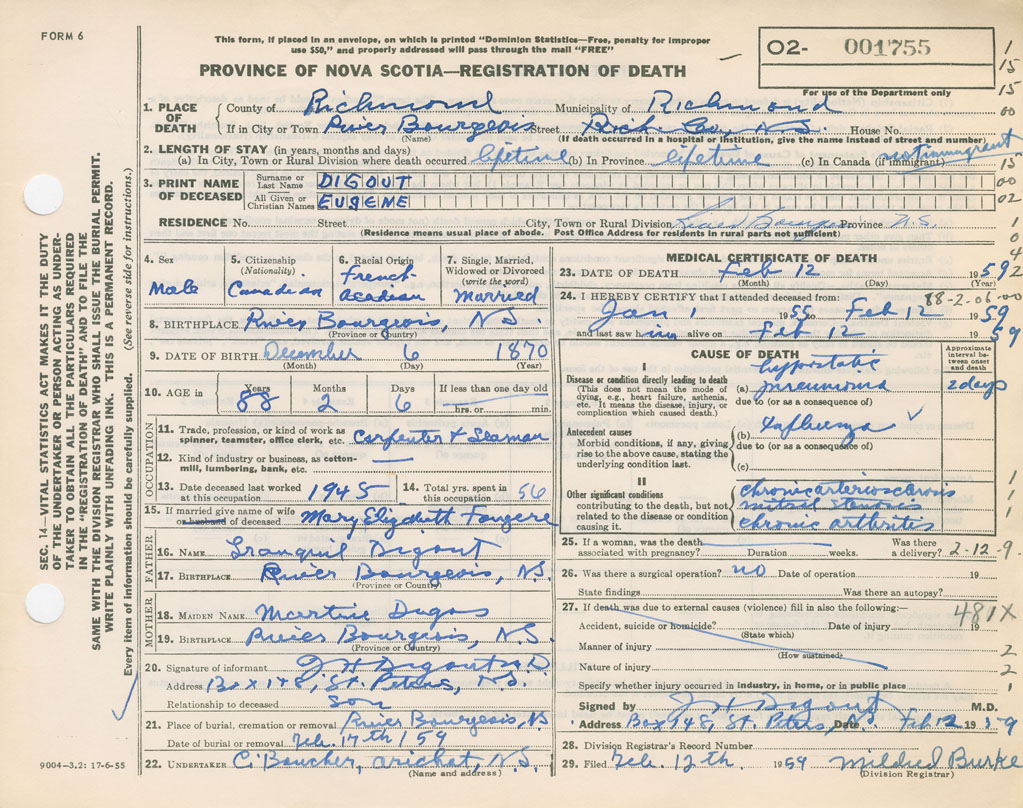 FORM 6
This form, if placed in an envelope, on which is printed "Dominion Statistics—Free, penalty for improper
use $50," and properly addressed will pass through the mail "FREE"
PROVINCE OF NOVA SCOTIA—REGISTRATION OF DEATH
O2- 001755
For use of the Department only
1
15
15
00
15
00
02
1
0
4
2
1. PLACE OF DEATH
County of Richmond Municipality of Richmond
If in City or Town River Bourgeois Street Rich. Co., N.S. House No.
(Name) (If death occurred in a hospital or institution, give the name instead of street and number)
2. LENGTH OF STAY (in years, months and days)
(a) In City, Town or Rural Division where death occurred lifetime (b) In Province lifetime (c) In Canada (if immigrant) not immigrant
3. PRINT NAME OF DECEASED
Surname or Last Name DIGOUT
All Given or Christian Names EUGENE
RESIDENCE No. Street City, Town or Rural Division River Bourgeois Province N.S.
(Residence means usual place of abode. Post Office Address for residents in rural parts not sufficient)
4. Sex
Male
5. Citizenship
(Nationality)
Canadian
6. Racial Origin
French
Acadian
7. Single, Married,
Widowed or Divorced
(write the word)
Married
8. BIRTHPLACE River Bourgeois, N.S.
(Province or Country)
9. DATE OF BIRTH December 6 1870
(Month) (Day) (Year)
10. AGE in
Years Months Days If less than one day old
88 2 6 hrs. or min.
OCCUPATION
11. Trade, profession, or kind of work as
spinner, teamster, office clerk, etc. Carpenter & Seaman
12. Kind of industry or business, as cotton-
mill, lumbering, bank, etc. —
13. Date deceased last worked
at this occupation 1945
14. Total yrs. spent in
this occupation 56
15. If married give name of wife
or husband of deceased Mary Elizabeth Fougere
FATHER
16. NAME Tranquil Digout
17. BIRTHPLACE River Bourgeois, N.S.
(Province or Country)
MOTHER
18. MAIDEN NAME Martine
19. BIRTHPLACE River Bourgeois, N.S.
(Province or Country)
20. Signature of informant J H Digout M.D
Address Box 148, St. Peters, N.S.
Relationship to deceased son
21. Place of burial, cremation or removal River Bourgeois, N.S
Date of burial or removal Feb. 17th / 59
22. UNDERTAKER C. Boucher, Arichat, N.S.
(Name and address)
9004-3.2: 17-6-55
MEDICAL CERTIFICATE OF DEATH
23. DATE OF DEATH Feb 12 1959
(Month) (Day) (Year)
24. I HEREBY CERTIFY that I attended deceased from: 88-2-06-00
Jan 1 1955 to Feb 12 1959
and last saw him alive on Feb 12 1959
CAUSE OF DEATH
Approximate interval between onset and death
I
Disease or condition directly leading to death
(This does not mean the mode of
dying, e.g., heart failure, asthenia,
etc. It means the disease, injury, or
complication which caused death.)
hypostatic
(a) pneumonia 2 days
due to (or as a consequence of)
Antecedent causes
Morbid conditions, if any, giving
rise to the above cause, stating the
underlying condition last.
(b) Influenza
due to (or as a consequence of)
(c)
II
Other significant conditions
contributing to the death, but not
related to the disease or condition
causing it.
chronic arteriosclerosis
mitral stenosis
chronic arthritis
1
1
1
25. If a woman, was the death Was there
associated with pregnancy? Duration weeks. a delivery? 2-12-9
26. Was there a surgical operation? no Date of operation 19
State findings Was there an autopsy?
27. If death was due to external causes (violence) fill in also the following:—
481X
Accident, suicide or homicide? Date of injury 19
(State which)
Manner of injury 2
(How sustained)
Nature of injury 2
Specify whether injury occurred in industry, in home, or in public place 1
Signed by J H Digout M.D.
Address Box 148, St. Peters, Date Feb 12 1959
28. Division Registrar's Record Number
29. Filed Feb. 17th 1959 Mildred Burke
(Division Registrar)
SEC. 14—VITAL STATISTICS ACT MAKES IT THE DUTY
OF THE UNDERTAKER OR PERSON ACTING AS UNDER-
TAKER TO OBTAIN ALL THE PARTICULARS REQUIRED
IN THE "REGISTRATION OF DEATH" AND TO FILE THE
SAME WITH THE DIVISION REGISTRAR WHO SHALL ISSUE THE BURIAL PERMIT.
WRITE PLAINLY WITH UNFADING INK. THIS IS A PERMANENT RECORD.
Every item of information should be carefully supplied. (See reverse side for instructions.)